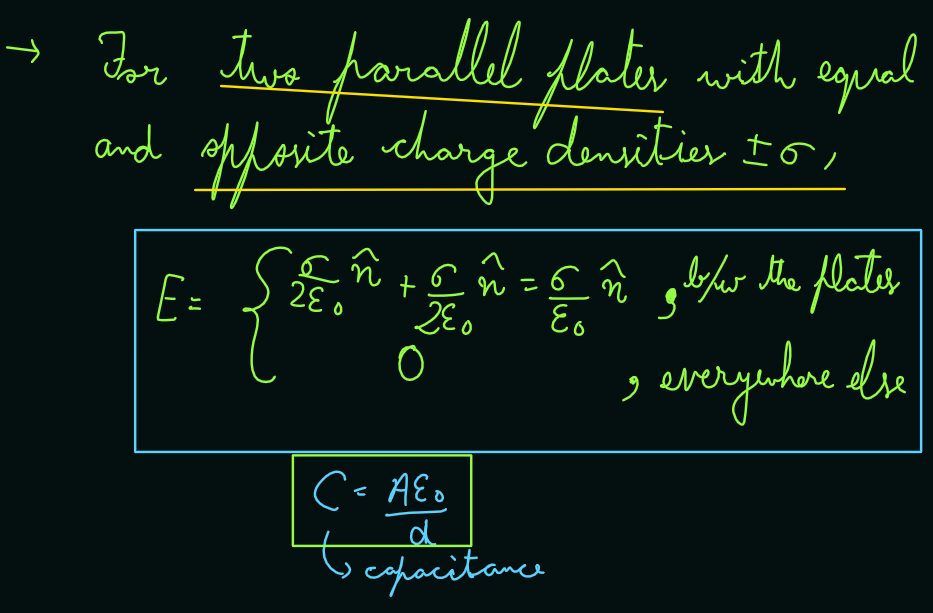 → For two parallel plates with equal
and opposite charge densities ±σ,
E = { σ/2ε₀ n̂ + σ/2ε₀ n̂ = σ/ε₀ n̂ , b/w the plates
0 , everywhere else
C = Aε₀/d
↳ capacitance